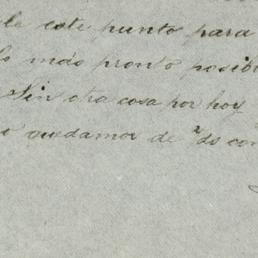 le este punto para
lo más pronto posib
Sin otra cosa por hoy
quedamos de Vds con